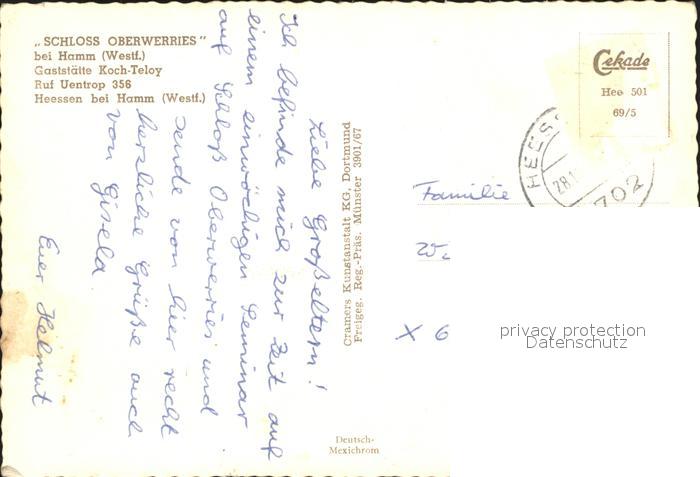 „SCHLOSS OBERWERRIES“
bei Hamm (Westf.)
Gaststätte Koch-Teloy
Ruf Uentrop 356
Heessen bei Hamm (Westf.)
Liebe Großeltern!
Ich befinde mich zur Zeit auf
einem einwöchigen Seminar
auf Schloß Oberwerries und
sende von hier recht
herzliche Grüße auch
von Gisela.
Euer Helmut
Cramers Kunstanstalt KG, Dortmund
Freigeg. Reg.-Präs. Münster 3901/67
Deutsch-
Mexichrom
Cekade
Hee 501
69/5
HEESS
28.1
702
Familie
W.
X 6
privacy protection
Datenschutz